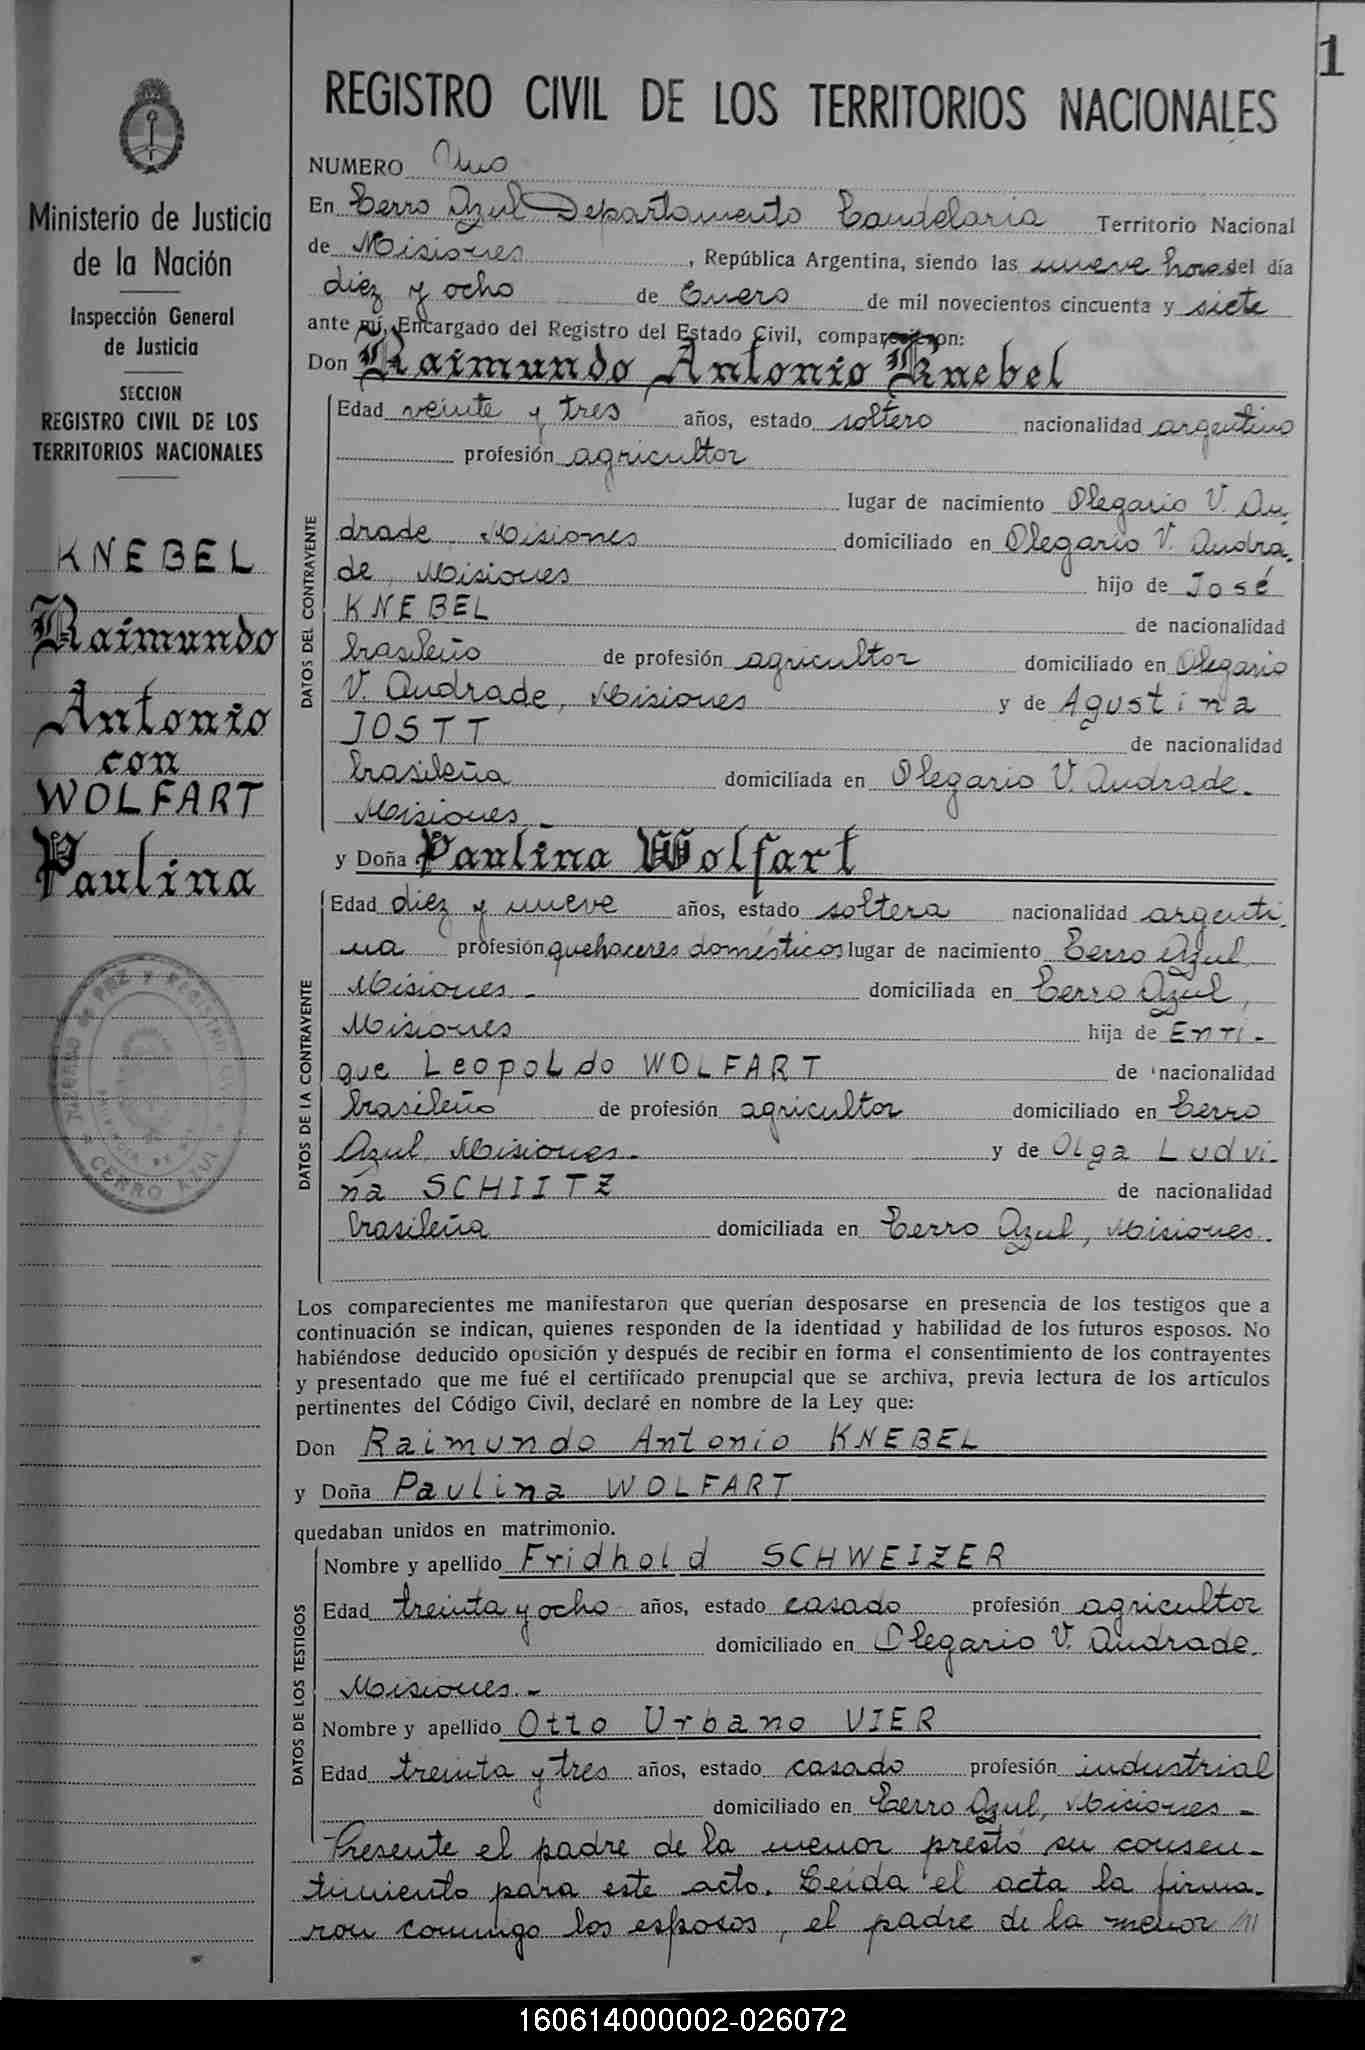 1
REGISTRO CIVIL DE LOS TERRITORIOS NACIONALES
Ministerio de Justicia
de la Nación
Inspección General
de Justicia
SECCION
REGISTRO CIVIL DE LOS
TERRITORIOS NACIONALES
KNEBEL
Raimundo
Antonio
con
WOLFART
Paulina
JUZGADO DE PAZ Y REGISTRO CIVIL
CERRO AZUL
NUMERO Uno
En Cerro Azul Departamento Candelaria Territorio Nacional
de Misiones, República Argentina, siendo las nueve horas del día
diez y ocho de Enero de mil novecientos cincuenta y siete
ante mí, Encargado del Registro del Estado Civil, comparecieron:
Don Raimundo Antonio Knebel
DATOS DEL CONTRAYENTE
Edad veinte y tres años, estado soltero nacionalidad argentino
profesión agricultor
lugar de nacimiento Olegario V. An-
drade, Misiones domiciliado en Olegario V. Andra-
de, Misiones hijo de José
KNEBEL de nacionalidad
brasileño de profesión agricultor domiciliado en Olegario
V. Andrade, Misiones y de Agustina
JOSTT de nacionalidad
brasileña domiciliada en Olegario V. Andrade.
Misiones -
y Doña Paulina Wolfart
DATOS DE LA CONTRAYENTE
Edad diez y nueve años, estado soltera nacionalidad argenti-
na profesión quehaceres domésticos lugar de nacimiento Cerro Azul
Misiones - domiciliada en Cerro Azul,
Misiones hija de Enri-
que Leopoldo WOLFART de nacionalidad
brasileño de profesión agricultor domiciliado en Cerro
Azul, Misiones - y de Olga Ludvi-
na SCHIITZ de nacionalidad
brasileña domiciliada en Cerro Azul, Misiones.
Los comparecientes me manifestaron que querían desposarse en presencia de los testigos que a
continuación se indican, quienes responden de la identidad y habilidad de los futuros esposos. No
habiéndose deducido oposición y después de recibir en forma el consentimiento de los contrayentes
y presentado que me fué el certificado prenupcial que se archiva, previa lectura de los artículos
pertinentes del Código Civil, declaré en nombre de la Ley que:
Don Raimundo Antonio KNEBEL
y Doña Paulina WOLFART
quedaban unidos en matrimonio.
DATOS DE LOS TESTIGOS
Nombre y apellido Fridhold SCHWEIZER
Edad treinta y ocho años, estado casado profesión agricultor
domiciliado en Olegario V. Andrade.
Misiones. -
Nombre y apellido Otto Urbano VIER
Edad treinta y tres años, estado casado profesión industrial
domiciliado en Cerro Azul, Misiones -
Presente el padre de la menor prestó su consen-
timiento para este acto. Leída el acta la firma-
ron conmigo los esposos, el padre de la menor ///
160614000002-026072